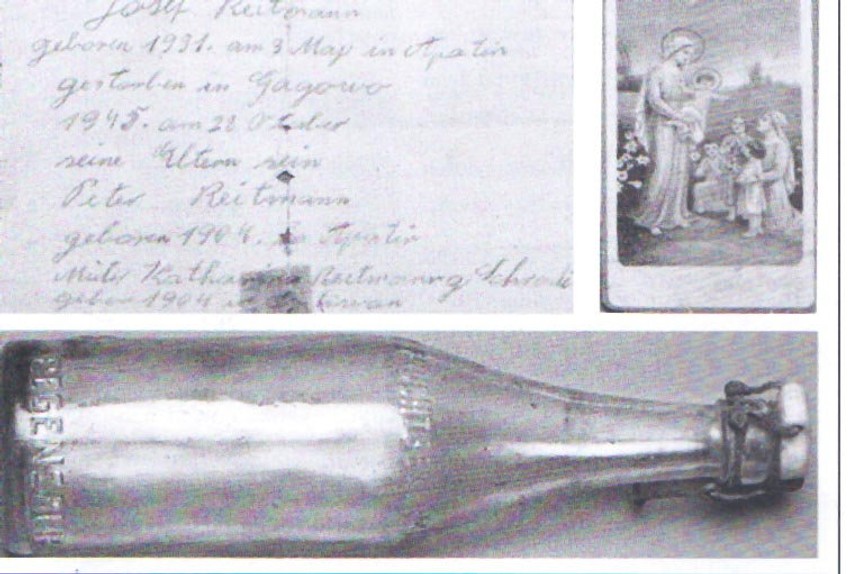 Josef Reitmann
geboren 1931. am 3 Maj in Apatin
gestorben in Gagowo
1945. am 28 Oktober
seine Eltern sein
Peter Reitmann
geboren 1904. in Apatin
Muter Katharina Reitmann g Schrodi
geboren 1904 in
EIGENTUM